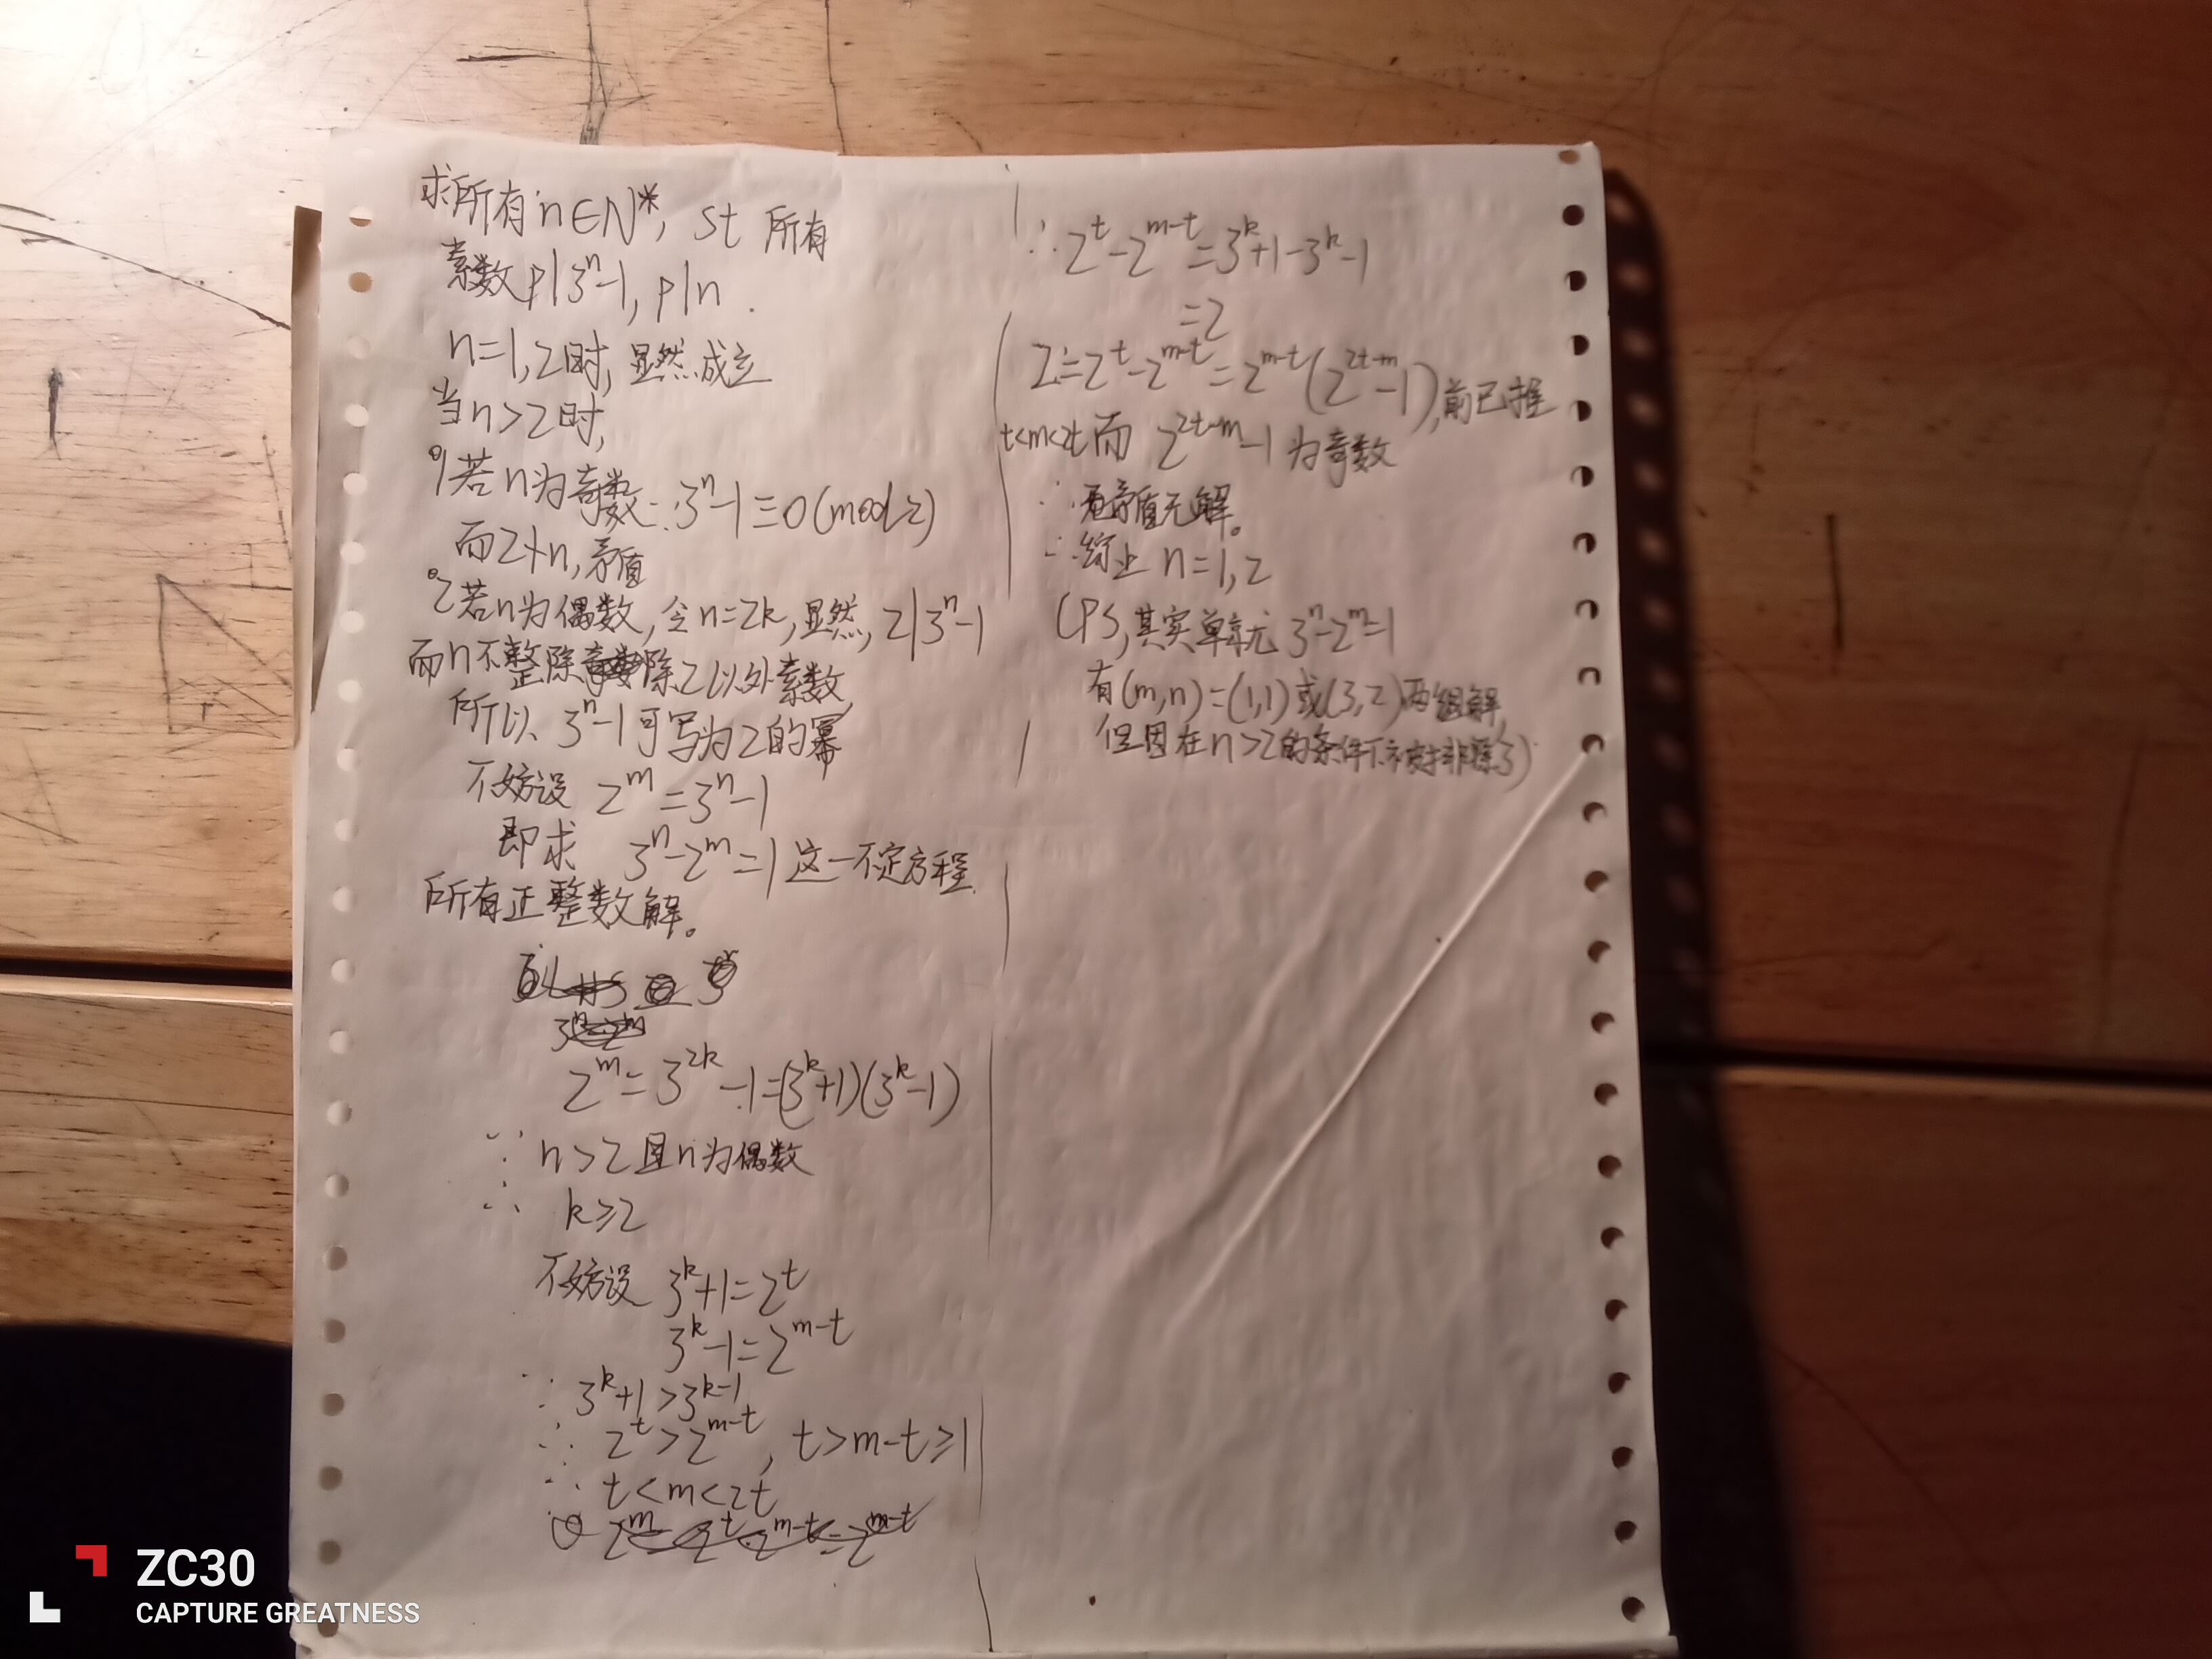 求所有n∈N*, st 所有
素数p|3ⁿ-1, p|n.
n=1,2时,显然成立
当n>2时,
°1若n为奇数∴3ⁿ-1≡0(mod2)
而2∤n,矛盾
°2若n为偶数,令n=2k,显然,2|3ⁿ-1
而n不整除除2以外素数,
所以 3ⁿ-1可写为2的幂
不妨设 2^m=3^n-1
即求 3^n-2^m=1这一不定方程
所有正整数解。
2^m=3^{2k}-1=(3^k+1)(3^k-1)
∵ n>2且n为偶数
∴ k≥2
不妨设 3^k+1=2^t
3^k-1=2^{m-t}
∵ 3^k+1>3^k-1
∴ 2^t>2^{m-t}, t>m-t≥1
∴ t<m<2t
∴ 2^t-2^{m-t}=3^k+1-3^k-1
=2
2=2^t-2^{m-t}=2^{m-t}(2^{2t-m}-1),前已推
t<m<2t而 2^{2t-m}-1为奇数
∴矛盾无解。
∴综上 n=1,2
(PS,其实单就元 3^n-2^m=1
有(m,n)=(1,1)或(3,2)两组解,
但因在n>2的条件下被排除了)
ZC30
CAPTURE GREATNESS